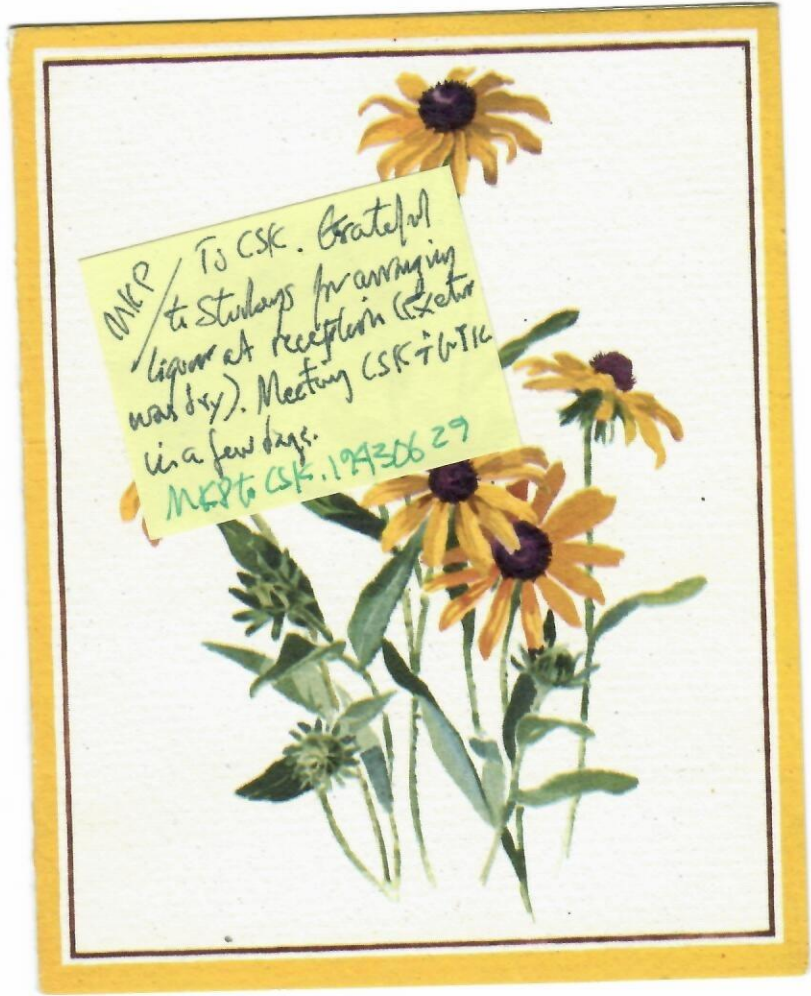 MKP / To CSK. Grateful
to Sturleys for arranging
liquor at reception (Exeter
was dry). Meeting CSK + GTK
in a few days.
MKP to CSK. 19930629